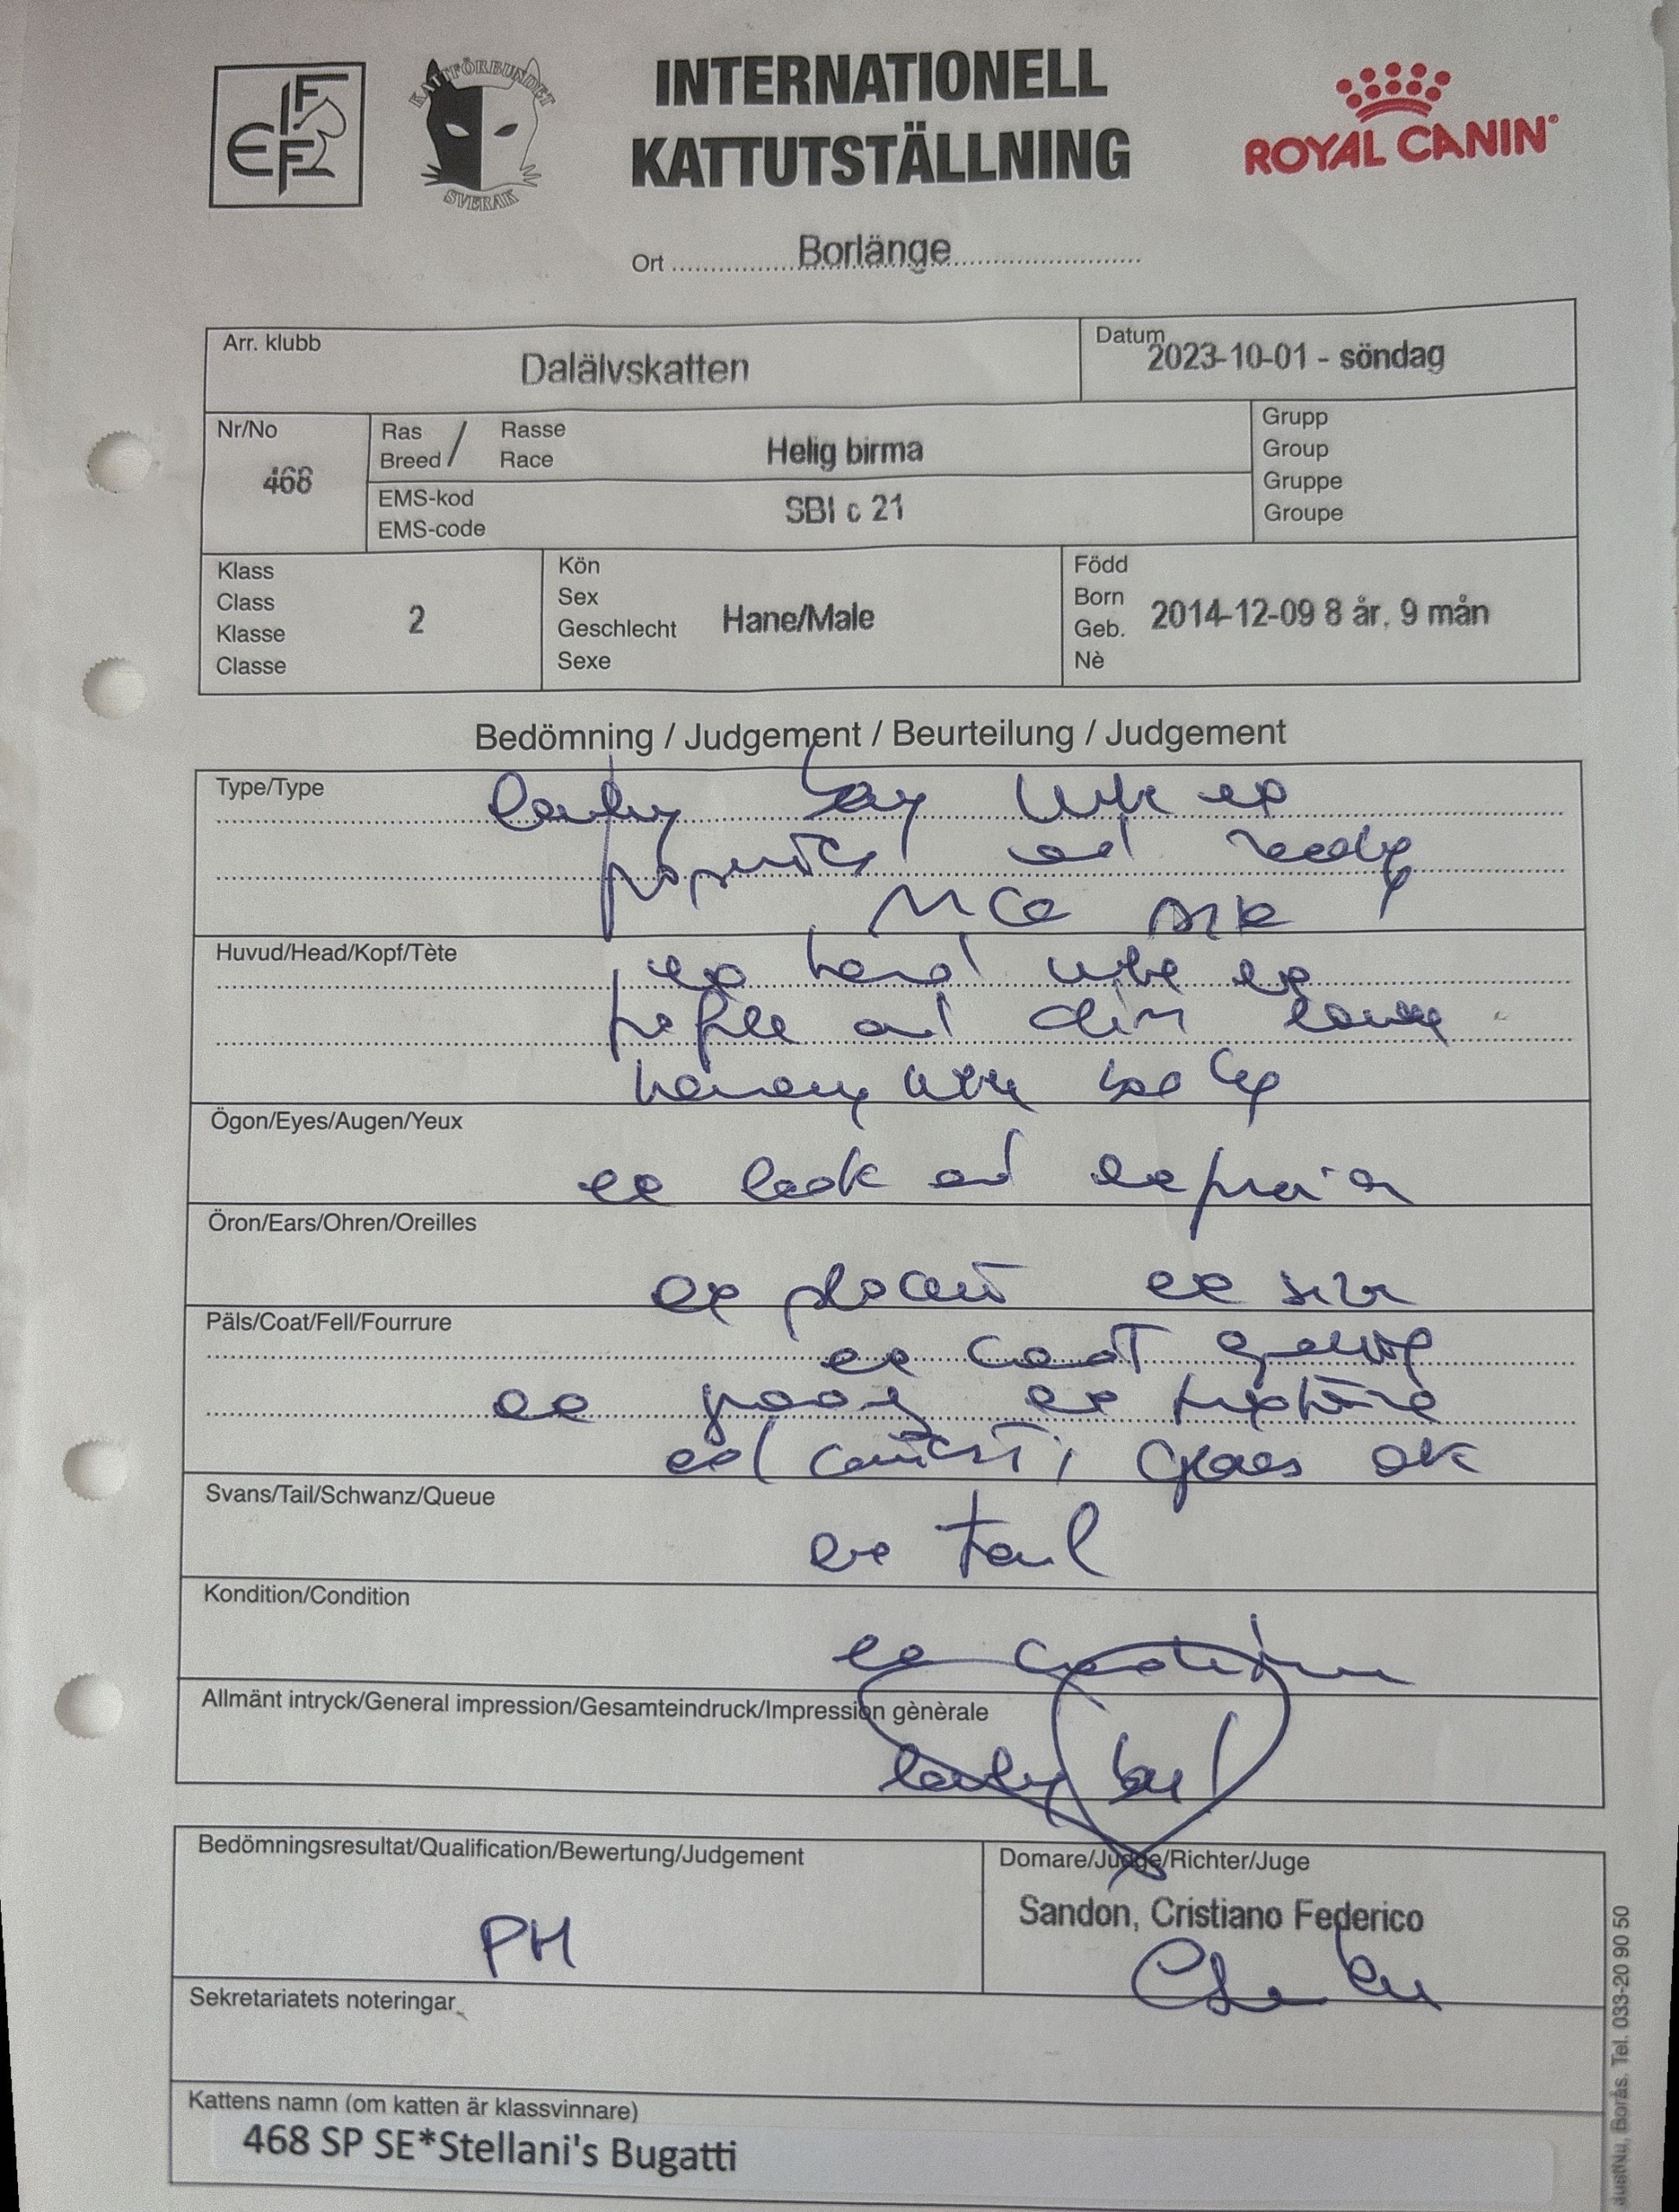 FIFE
KATTFÖRBUNDET
SVERAK
INTERNATIONELL
KATTUTSTÄLLNING
ROYAL CANIN
Ort Borlänge
Arr. klubb
Dalälvskatten
Datum
2023-10-01 - söndag
Nr/No
468
Ras Rasse
Breed / Race
Helig birma
EMS-kod
EMS-code
SBI c 21
Grupp
Group
Gruppe
Groupe
Klass
Class
Klasse
Classe
2
Kön
Sex
Geschlecht
Sexe
Hane/Male
Född
Born
Geb.
Nè
2014-12-09 8 år, 9 mån
Bedömning / Judgement / Beurteilung / Judgement
Type/Type
boy ex
and
nice size
Huvud/Head/Kopf/Tète
ex head with ex
profile and chin
Ögon/Eyes/Augen/Yeux
ex look and expression
Öron/Ears/Ohren/Oreilles
ex placement ex size
Päls/Coat/Fell/Fourrure
ex coat quality
ex ex texture
gloves ok
Svans/Tail/Schwanz/Queue
ex tail
Kondition/Condition
ex condition
Allmänt intryck/General impression/Gesamteindruck/Impression gènèrale
boy!
Bedömningsresultat/Qualification/Bewertung/Judgement
PH
Domare/Judge/Richter/Juge
Sandon, Cristiano Federico
Sekretariatets noteringar
Kattens namn (om katten är klassvinnare)
468 SP SE*Stellani's Bugatti
Borås. Tel. 033-20 90 50